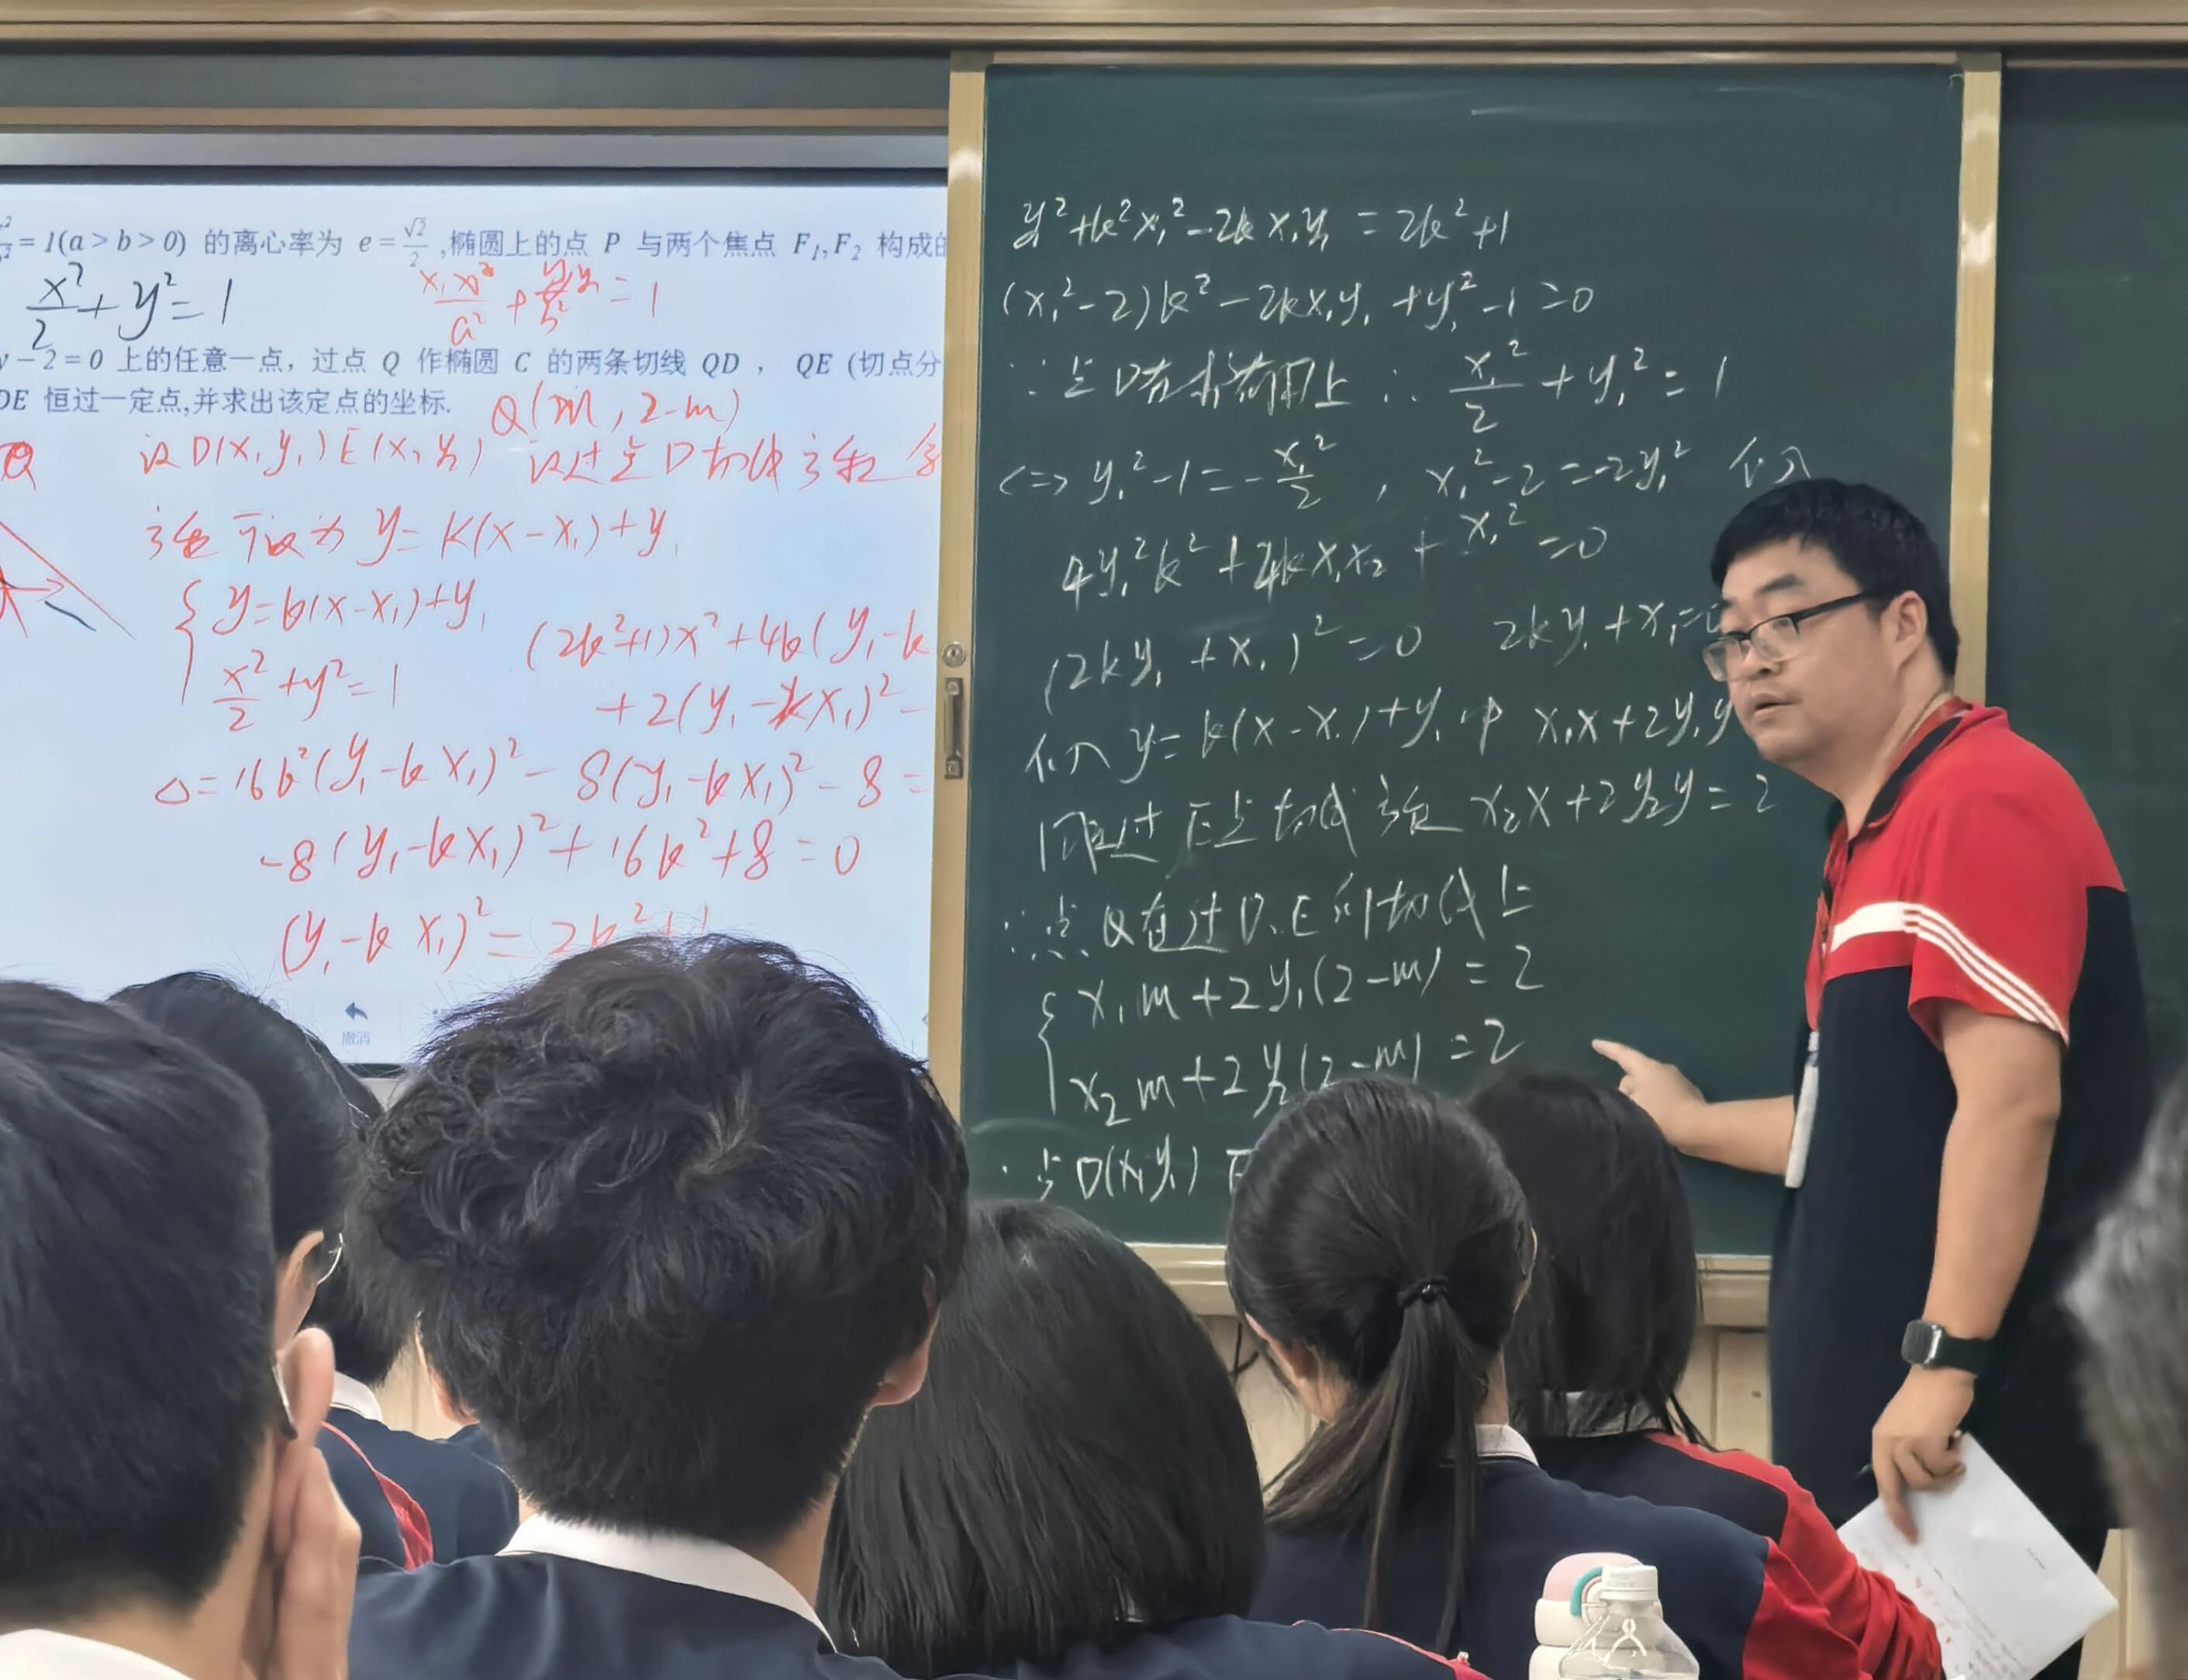 =1(a>b>0) 的离心率为 e=√2/2,椭圆上的点 P 与两个焦点 F₁,F₂ 构成
x²/2+y²=1
y-2=0 上的任意一点，过点 Q 作椭圆 C 的两条切线 QD，QE (切点分
DE 恒过一定点,并求出该定点的坐标.
Q(m,2-m)
设D(x₁y₁)E(x₂y₂) 设过点D切线方程
方程可设为 y=k(x-x₁)+y₁
y=k(x-x₁)+y₁
x²/2+y²=1
(2k²+1)x²+4k(y₁-k
+2(y₁-kx₁)²-
Δ=16k²(y₁-kx₁)²-8(y₁-kx₁)²-8=
-8(y₁-kx₁)²+16k²+8=0
(y₁-kx₁)²=2k²+1
撤消
y₁²+k²x₁²-2kx₁y₁=2k²+1
(x₁²-2)k²-2kx₁y₁+y₁²-1=0
∵点D在椭圆上∴x₁²/2+y₁²=1
<=>y₁²-1=-x₁²/2, x₁²-2=-2y₁² 代入
4y₁²k²+4kx₁x₂+x₁²=0
(2ky₁+x₁)²=0 2ky₁+x₁=0
代入y=k(x-x₁)+y₁中 x₁x+2y₁y
同理过E点切线方程 x₂x+2y₂y=2
∵点Q在过D、E的切线上
x₁m+2y₁(2-m)=2
x₂m+2y₂(2-m)=2
点D(x₁y₁) E